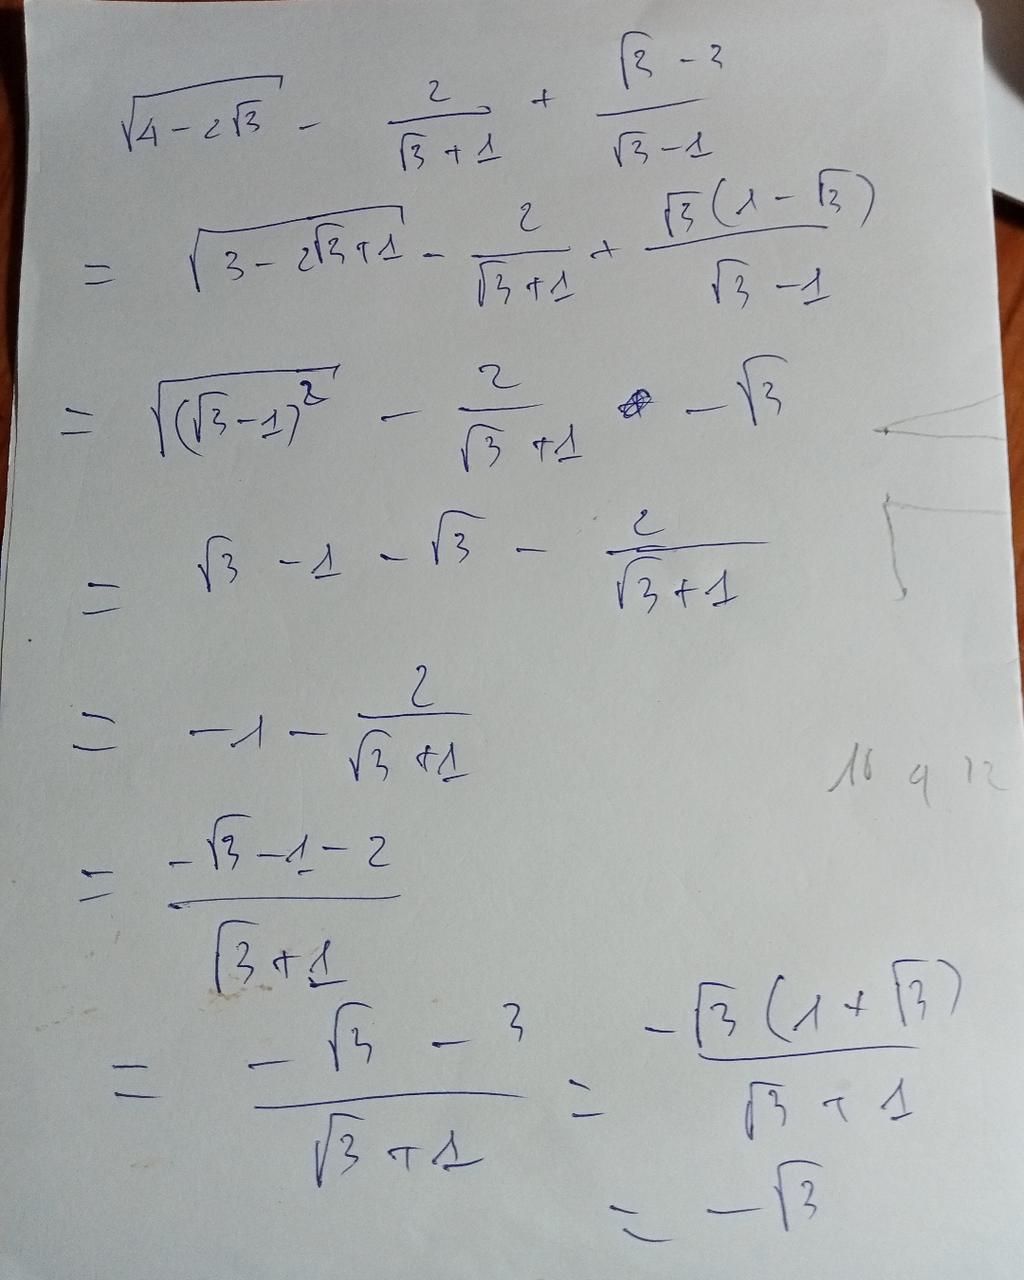 √(4 - 2√3) - 2/(√3 + 1) + (√3 - 3)/(√3 - 1)
= √(3 - 2√3 + 1) - 2/(√3 + 1) + √3(1 - √3)/(√3 - 1)
= √((√3 - 1)²) - 2/(√3 + 1) - √3
= √3 - 1 - √3 - 2/(√3 + 1)
= -1 - 2/(√3 + 1)
= (-√3 - 1 - 2)/(√3 + 1)
= (-√3 - 3)/(√3 + 1) = -√3(1 + √3)/(√3 + 1)
= -√3